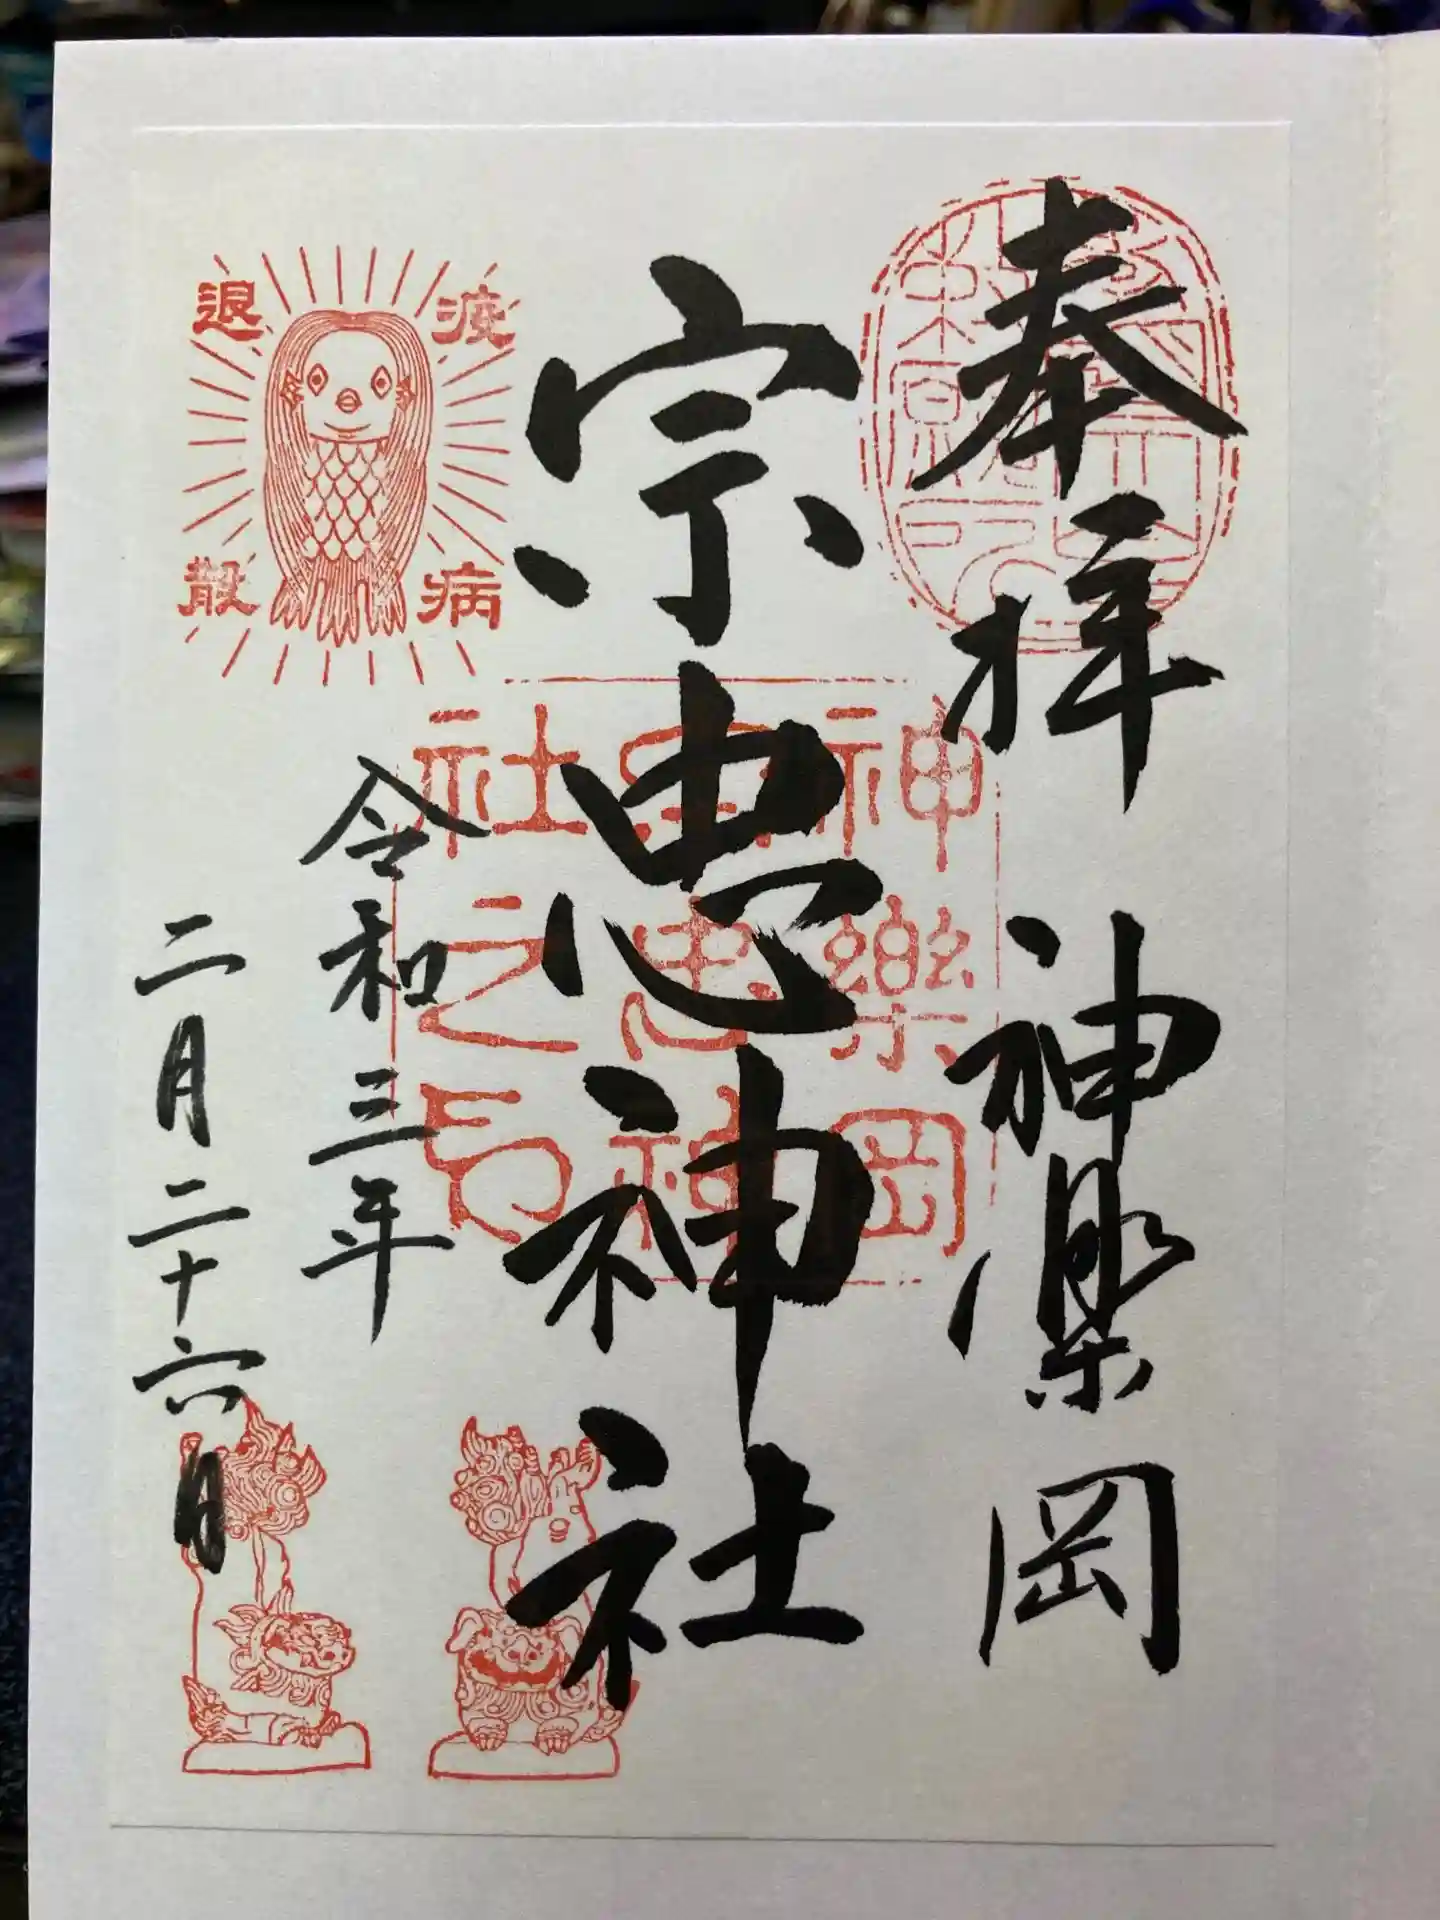 奉拝 神楽岡
宗忠神社
令和三年
二月二十六日
疫病
退散
神樂岡
宗忠神
社之印